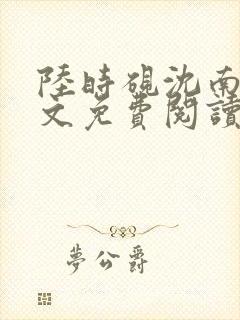 陸時硯沈南
文免費閱讀
夢公爵